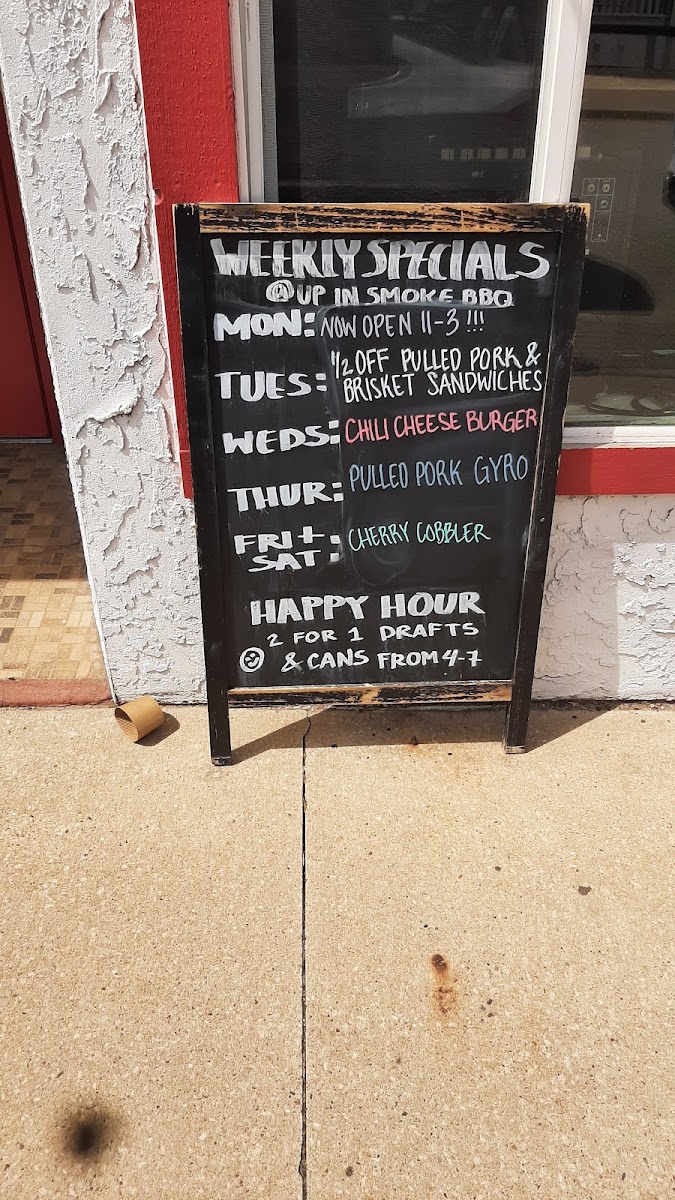 WEEKLY SPECIALS
@ UP IN SMOKE BBQ
MON: NOW OPEN 11-3 !!!
TUES: 1/2 OFF PULLED PORK &
BRISKET SANDWICHES
WEDS: CHILI CHEESE BURGER
THUR: PULLED PORK GYRO
FRI +
SAT: CHERRY COBBLER
HAPPY HOUR
2 FOR 1 DRAFTS
& CANS FROM 4-7